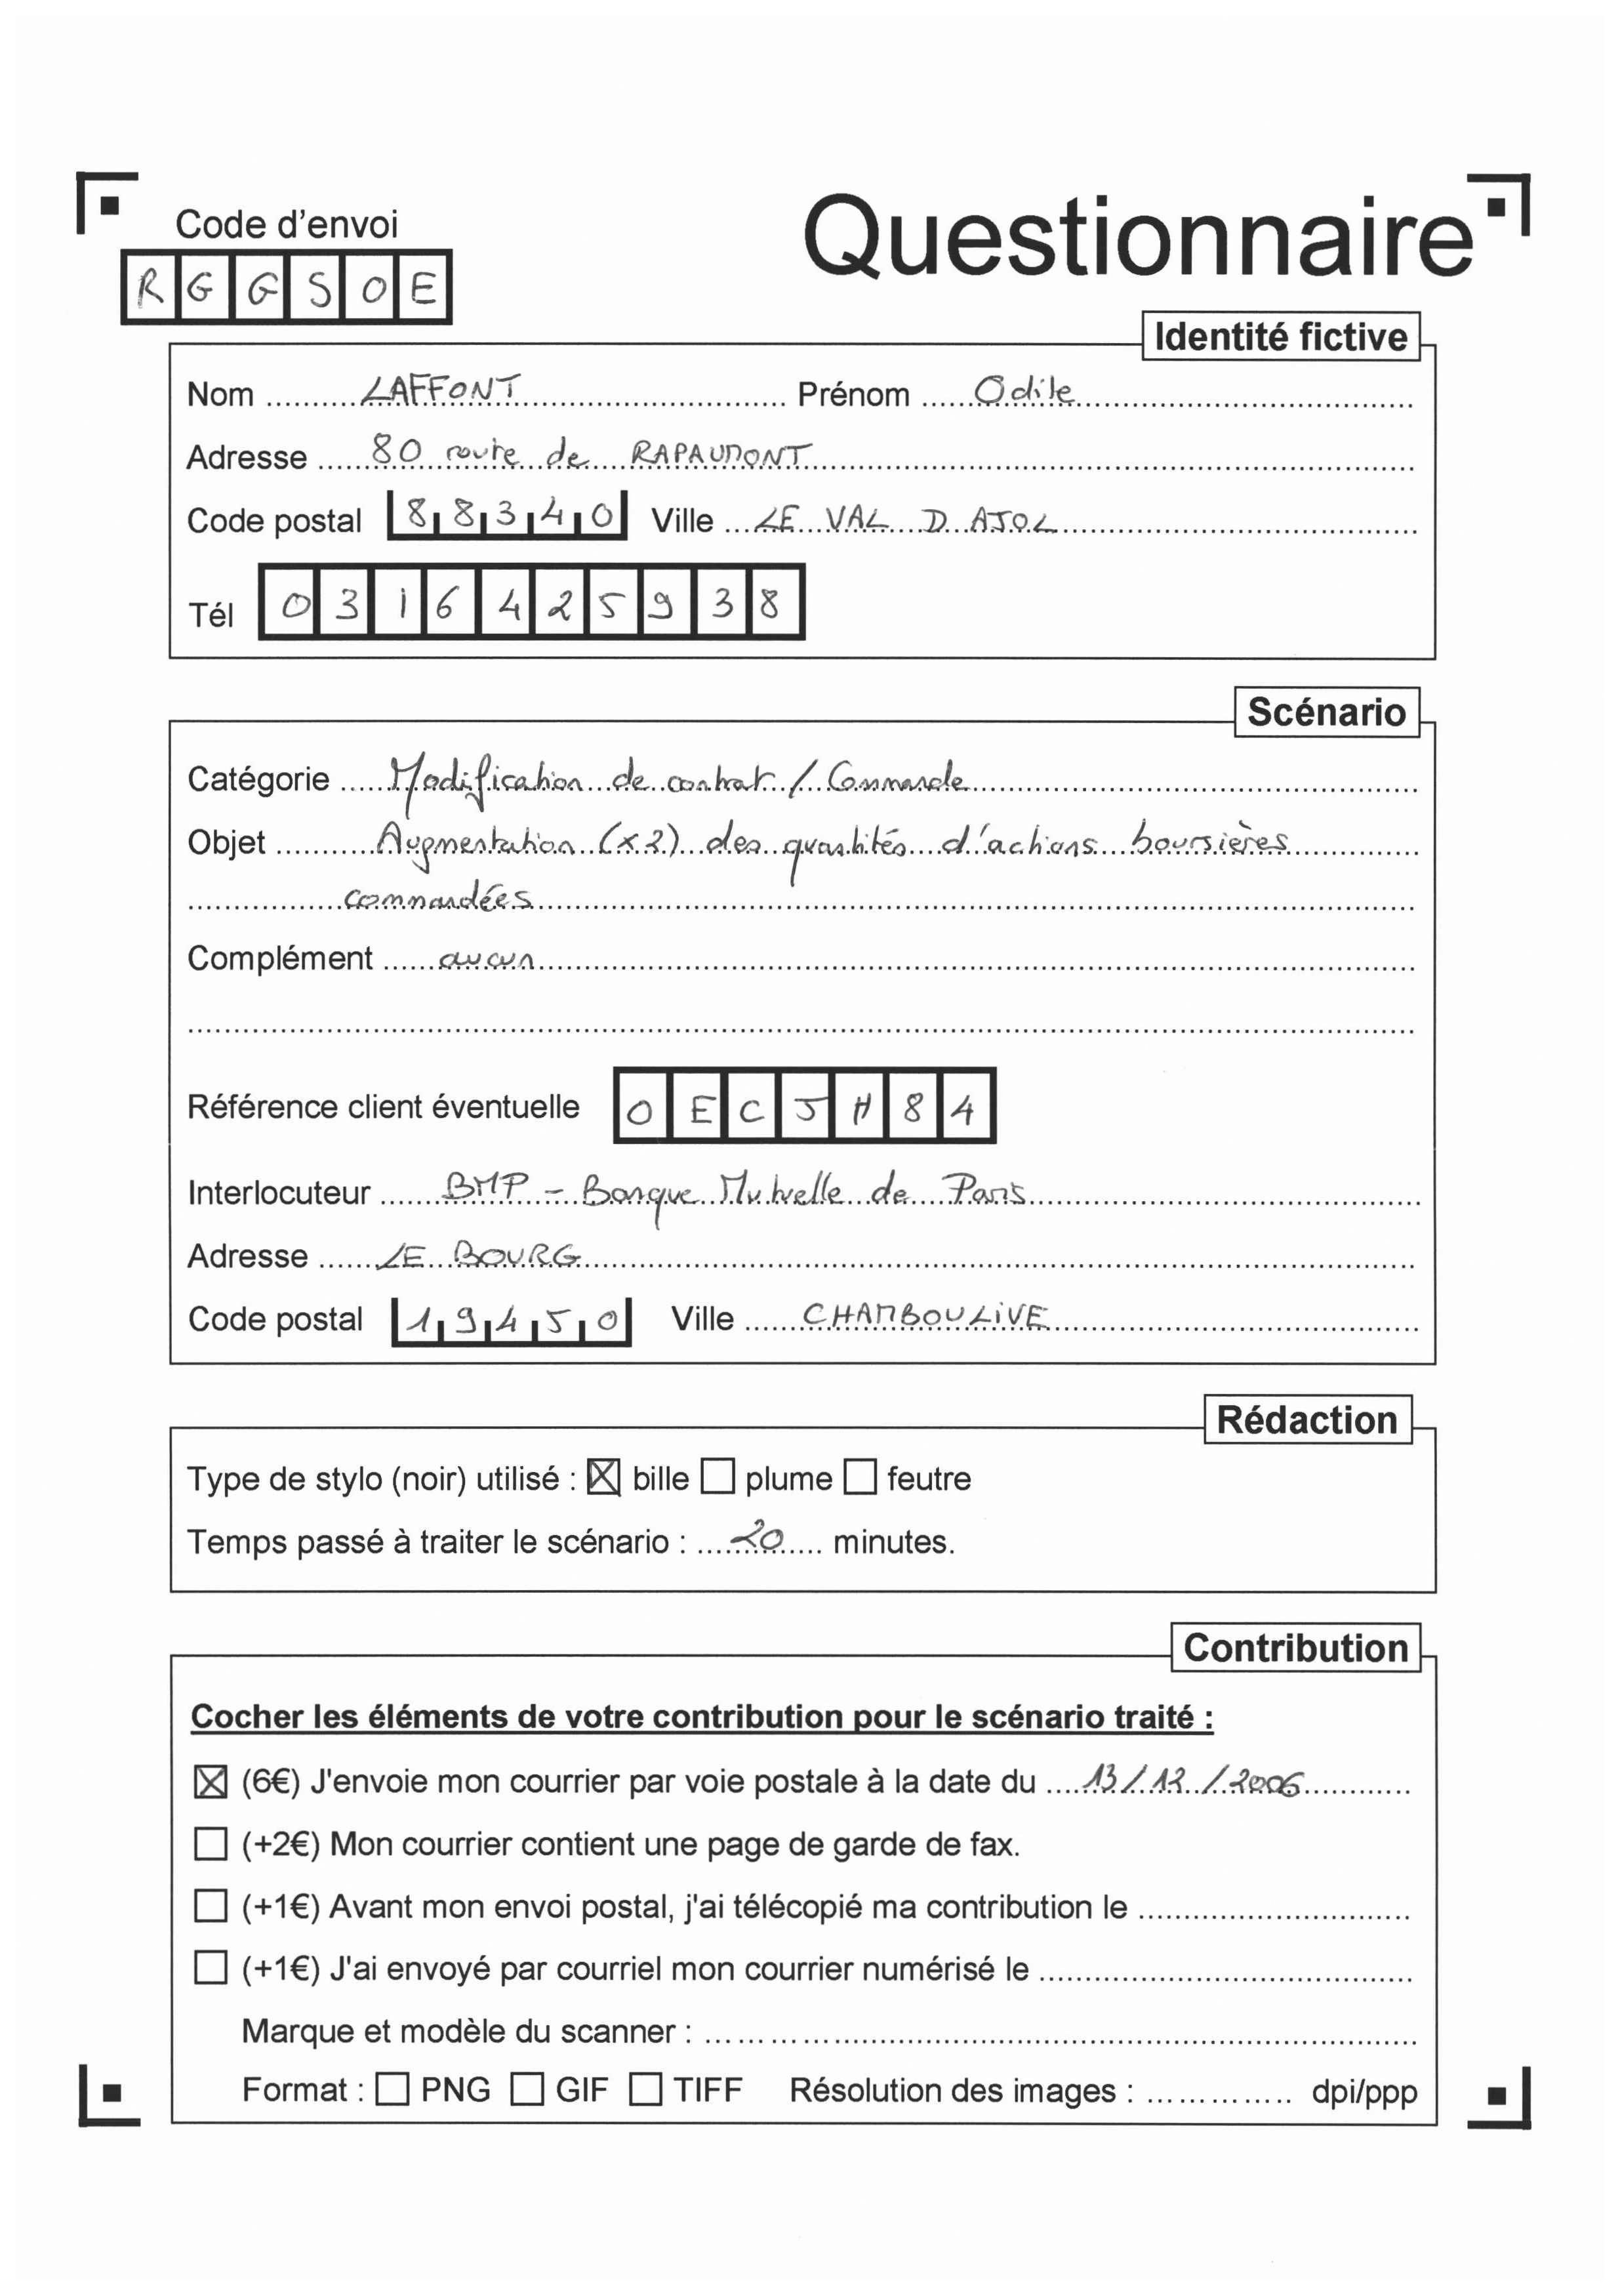 Questionnaire
Code d'envoi
RGGSOE
Identité fictive
Nom LAFFONT Prénom Odile
Adresse 80 route de RAPAUMONT
Code postal 88340 Ville LE VAL D AJOL
Tél 0316425938
Scénario
Catégorie Modification de contrat / Commande
Objet Augmentation (x2) des quantités d'actions boursières
commandées
Complément aucun
Référence client éventuelle OECJH84
Interlocuteur BMP - Banque Mutuelle de Paris
Adresse LE BOURG
Code postal 19450 Ville CHAMBOULIVE
Rédaction
Type de stylo (noir) utilisé : ☒ bille ☐ plume ☐ feutre
Temps passé à traiter le scénario : 20 minutes.
Contribution
Cocher les éléments de votre contribution pour le scénario traité :
☒ (6€) J'envoie mon courrier par voie postale à la date du 13/12/2006
☐ (+2€) Mon courrier contient une page de garde de fax.
☐ (+1€) Avant mon envoi postal, j'ai télécopié ma contribution le
☐ (+1€) J'ai envoyé par courriel mon courrier numérisé le
Marque et modèle du scanner :
Format : ☐ PNG ☐ GIF ☐ TIFF Résolution des images : dpi/ppp